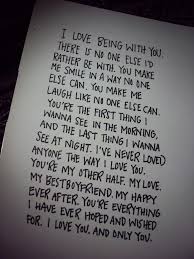 I LOVE BEING WITH YOU.
THERE IS NO ONE ELSE I'D
RATHER BE WITH. YOU MAKE
ME SMILE IN A WAY NO ONE
ELSE CAN. YOU MAKE ME
LAUGH LIKE NO ONE ELSE CAN.
YOU'RE THE FIRST THING I
WANNA SEE IN THE MORNING,
AND THE LAST THING I WANNA
SEE AT NIGHT. I'VE NEVER LOVED
ANYONE THE WAY I LOVE YOU.
YOU'RE MY OTHER HALF. MY LOVE.
MY BESTBOYFRIEND. MY HAPPY
EVER AFTER. YOU'RE EVERYTHING
I HAVE EVER HOPED AND WISHED
FOR. I LOVE YOU. AND ONLY YOU.